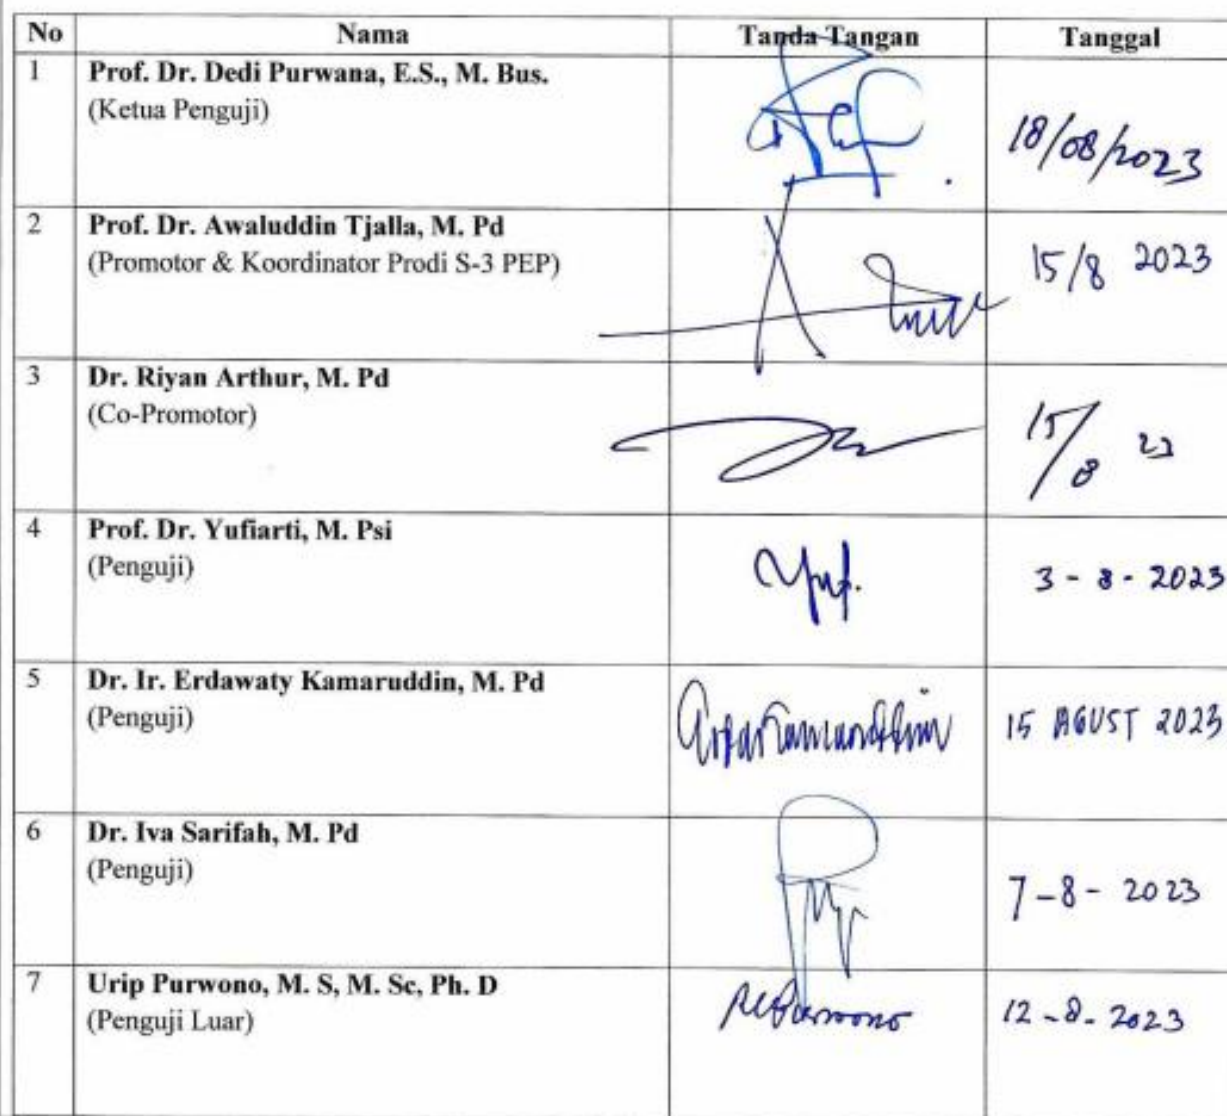 No Nama Tanda Tangan Tanggal
1 Prof. Dr. Dedi Purwana, E.S., M. Bus.
(Ketua Penguji)
18/08/2023
2 Prof. Dr. Awaluddin Tjalla, M. Pd
(Promotor & Koordinator Prodi S-3 PEP)
15/8 2023
3 Dr. Riyan Arthur, M. Pd
(Co-Promotor)
15/8 23
4 Prof. Dr. Yufiarti, M. Psi
(Penguji)
3 - 8 - 2023
5 Dr. Ir. Erdawaty Kamaruddin, M. Pd
(Penguji)
15 AGUST 2023
6 Dr. Iva Sarifah, M. Pd
(Penguji)
7-8- 2023
7 Urip Purwono, M. S, M. Sc, Ph. D
(Penguji Luar)
12-8-2023